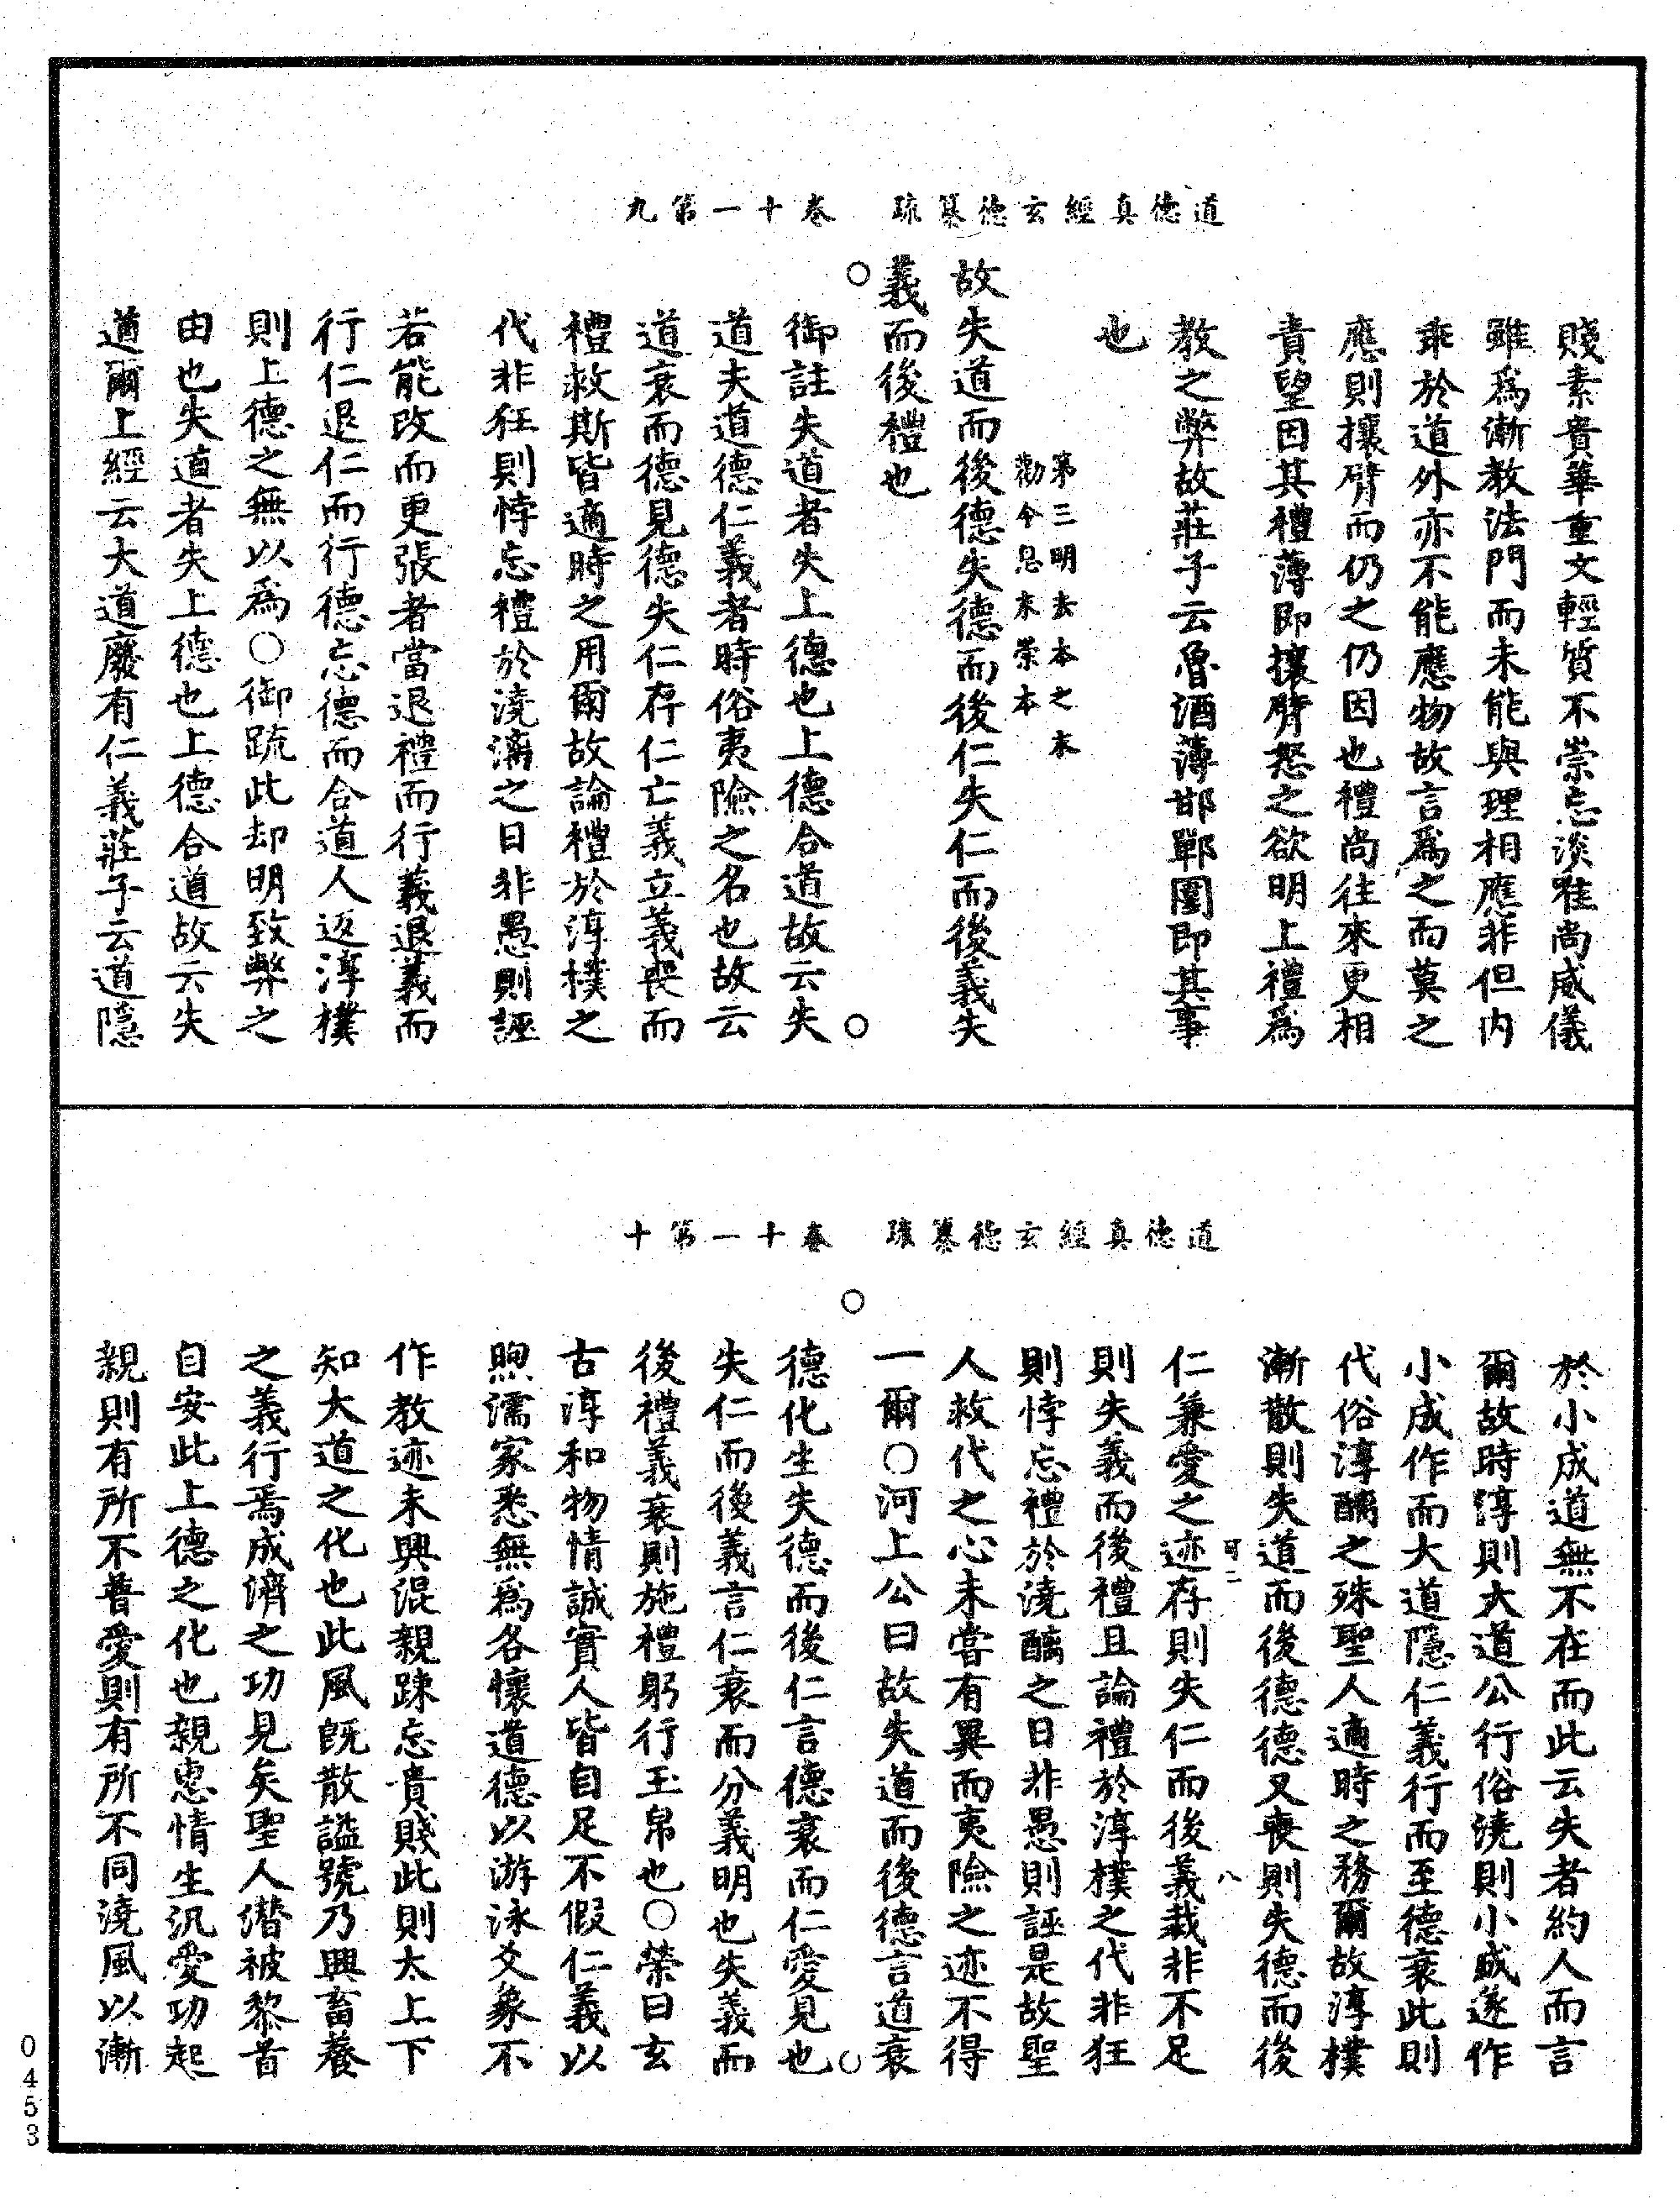 道德真經玄德纂疏　卷十一第九
賤素貴華重文輕質不崇忘淡唯尚威儀
雖爲漸教法門而未能與理相應非但內
乖於道外亦不能應物故言爲之而莫之
應則攘臂而仍之仍因也禮尚往來更相
責望因其禮薄即攘臂怒之欲明上禮爲
教之弊故莊子云魯酒薄邯鄲圍即其事
也
第三明去本之末
勸令息末崇本
故失道而後德失德而後仁失仁而後義失
義而後禮也
御註失道者失上德也上德合道故云失
道夫道德仁義者時俗夷險之名也故云
道衰而德見德失仁存仁亡義立義喪而
禮救斯皆適時之用爾故論禮於淳樸之
代非狂則悖忘禮於澆漓之日非愚則誣
若能改而更張者當退禮而行義退義而
行仁退仁而行德忘德而合道人返淳樸
則上德之無以爲○御疏此却明致弊之
由也失道者失上德也上德合道故云失
道爾上經云大道廢有仁義莊子云道隱
道德真經玄德纂疏　卷十一第十
於小成道無不在而此云失者約人而言
爾故時淳則大道公行俗澆則小成遂作
小成作而大道隱仁義行而至德衰此則
代俗淳醨之殊聖人適時之務爾故淳樸
漸散則失道而後德德又喪則失德而後
可二　八
仁兼愛之迹存則失仁而後義裁非不足
則失義而後禮且論禮於淳樸之代非狂
則悖忘禮於澆醨之日非愚則誣是故聖
人救代之心未嘗有異而夷險之迹不得
一爾○河上公曰故失道而後德言道衰
德化生失德而後仁言德衰而仁愛見也
失仁而後義言仁衰而分義明也失義而
後禮義衰則施禮躬行玉帛也○榮曰玄
古淳和物情誠實人皆自足不假仁義以
煦濡家悉無爲各懷道德以游泳爻象不
作教迹未興混親踈忘貴賤此則太上下
知大道之化也此風旣散謚號乃興畜養
之義行焉成濟之功見矣聖人潛被黎首
自安此上德之化也親惠情生汎愛功起
親則有所不普愛則有所不同澆風以漸
0453